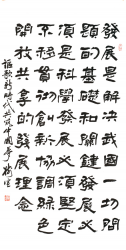 發展是解決我國一切
問題的基礎和關鍵發展必
須是科學發展必須堅定
不移貫徹創新協調綠色
開放共享的發展理念
謳歌新時代共築中國夢